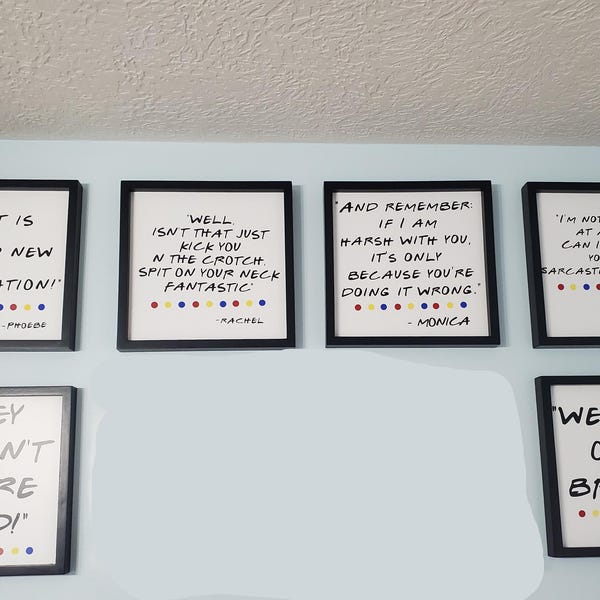 T IS
NEW
ATION!"
-PHOEBE
"WELL,
ISN'T THAT JUST
KICK YOU
N THE CROTCH,
SPIT ON YOUR NECK
FANTASTIC"
-RACHEL
"AND REMEMBER:
IF I AM
HARSH WITH YOU,
IT'S ONLY
BECAUSE YOU'RE
DOING IT WRONG."
- MONICA
"I'M NOT
AT
CAN I
YO
SARCAST
EY
N'T
RE
D!"
"WE
O
BR